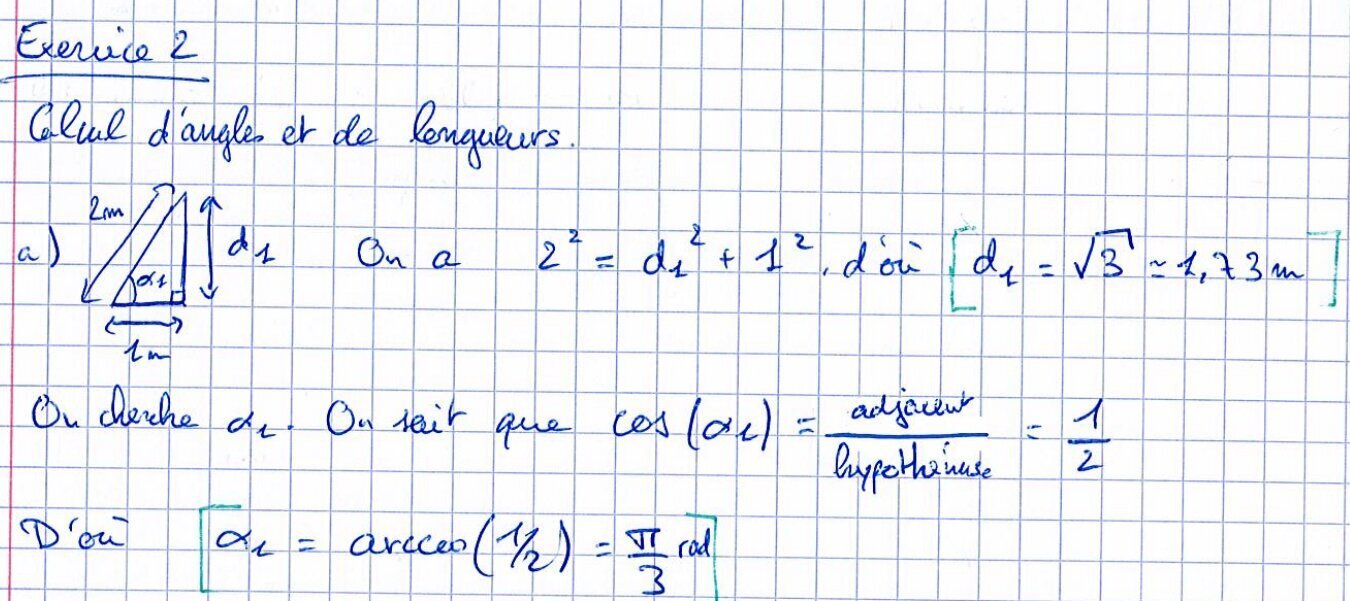 Exercice 2
Calcul d'angles et de longueurs.
a) 2m α₁ d₁ 1m On a 2² = d₁² + 1², d'où [d₁ = √3 ≃ 1,73 m]
On cherche α₁. On sait que cos(α₁) = adjacent/hypothénuse = 1/2
D'où [α₁ = arccos(1/2) = π/3 rad]